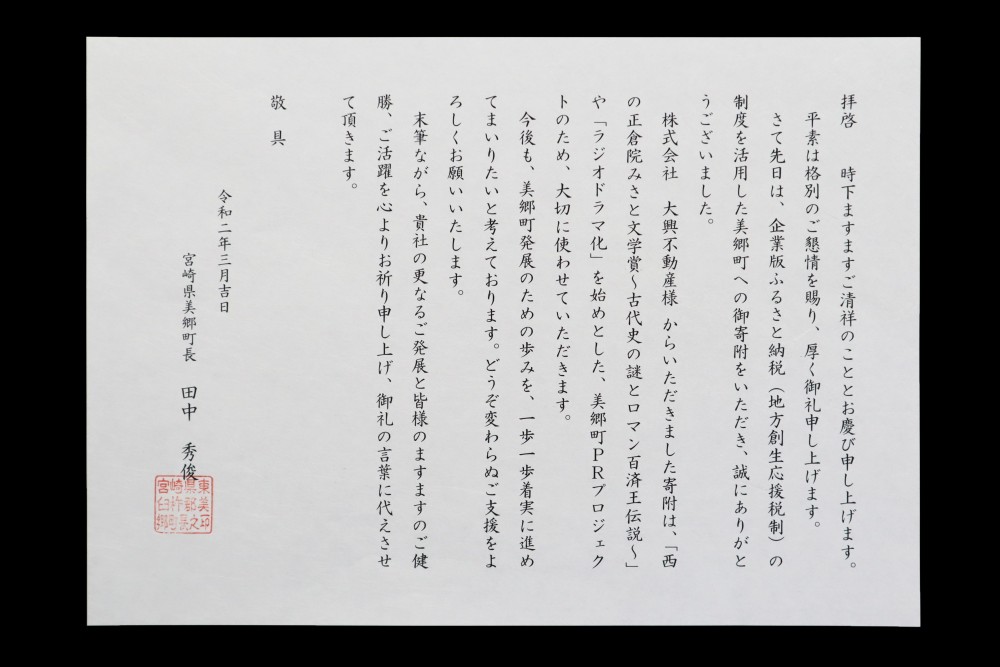 拝啓　時下ますますご清祥のこととお慶び申し上げます。
平素は格別のご懇情を賜り、厚く御礼申し上げます。
さて先日は、企業版ふるさと納税（地方創生応援税制）の
制度を活用した美郷町への御寄附をいただき、誠にありがと
うございました。
株式会社　大興不動産様 からいただきました寄附は、「西
の正倉院みさと文学賞～古代史の謎とロマン百済王伝説～」
や「ラジオドラマ化」を始めとした、美郷町ＰＲプロジェク
トのため、大切に使わせていただきます。
今後も、美郷町発展のための歩みを、一歩一歩着実に進め
てまいりたいと考えております。どうぞ変わらぬご支援をよ
ろしくお願いいたします。
末筆ながら、貴社の更なるご発展と皆様のますますのご健
勝、ご活躍を心よりお祈り申し上げ、御礼の言葉に代えさせ
て頂きます。
敬　具
令和二年三月吉日
宮崎県美郷町長　田中　秀俊
東美印
県郡之
崎杵町長
宮臼郷